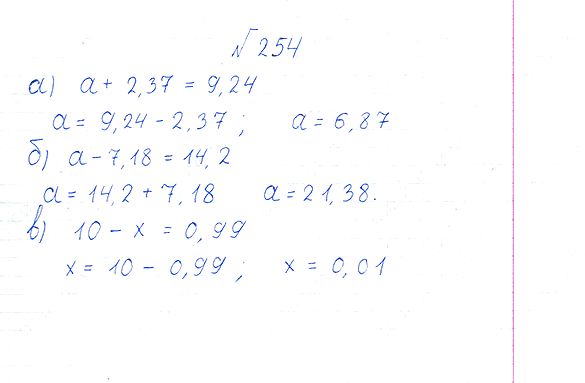 № 254
а) a + 2,37 = 9,24
a = 9,24 - 2,37 ; a = 6,87
б) a - 7,18 = 14,2
a = 14,2 + 7,18 a = 21,38.
в) 10 - x = 0,99
x = 10 - 0,99 ; x = 0,01